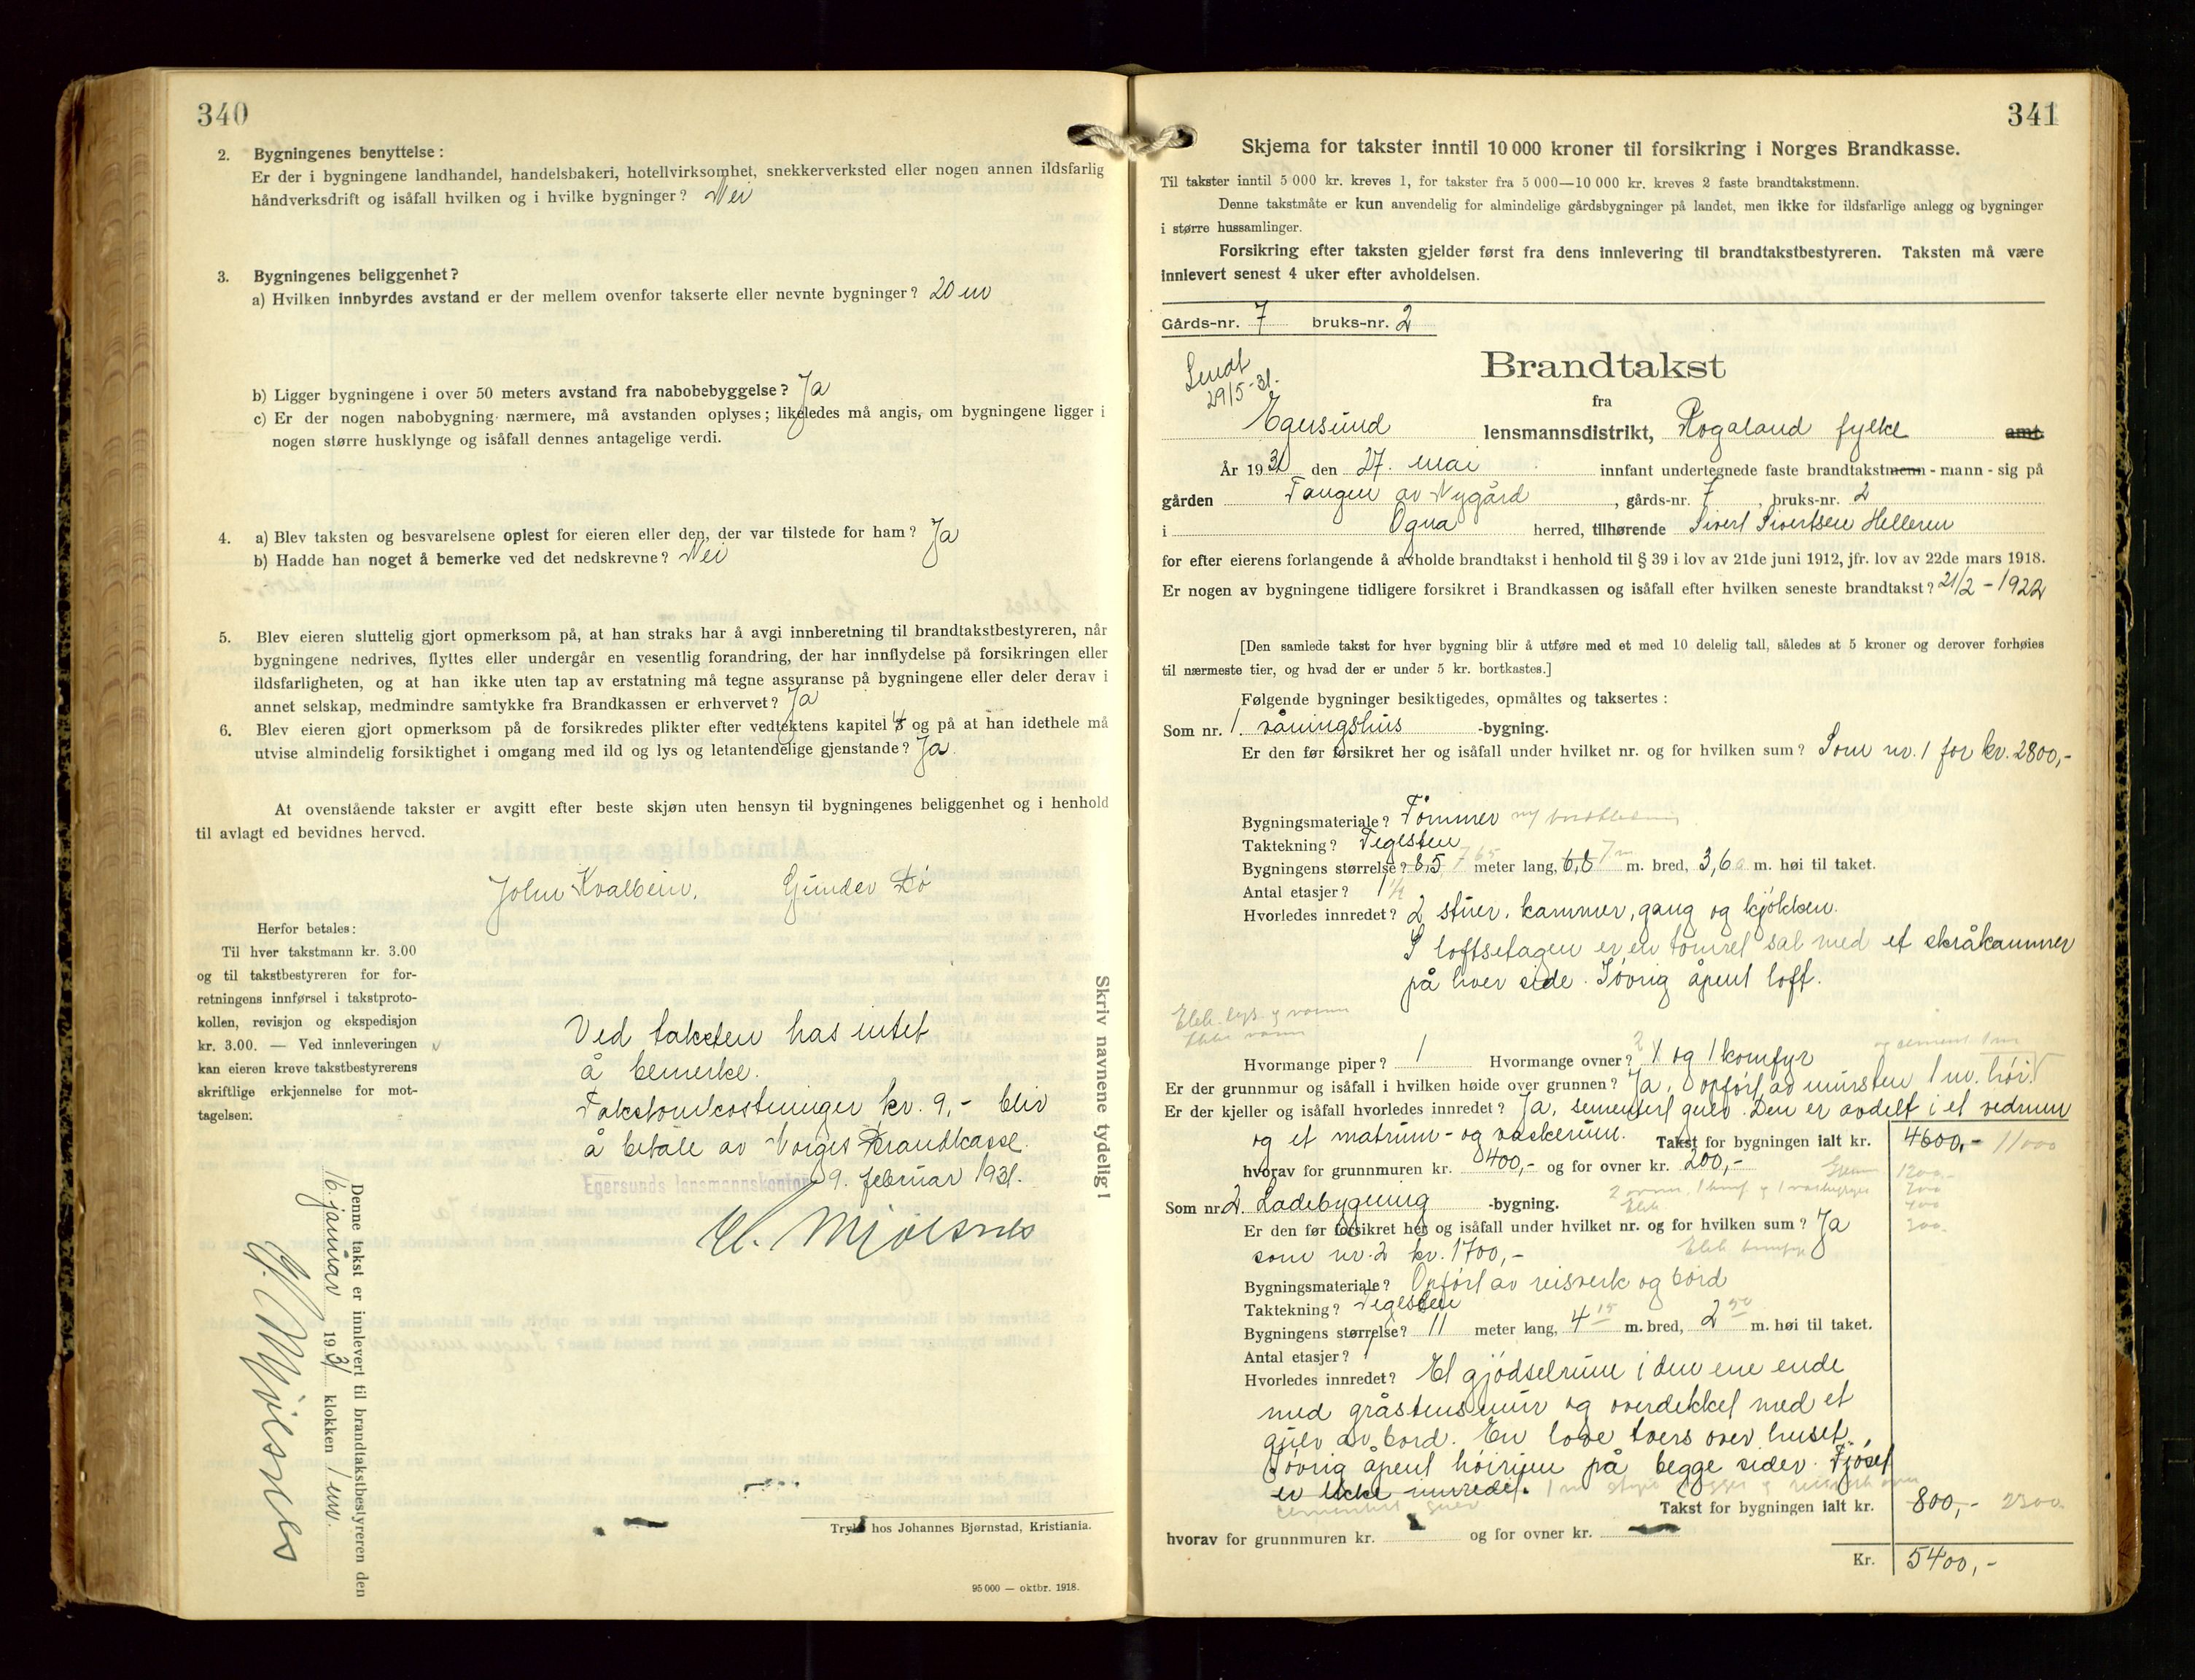 340
2. Bygningenes benyttelse :
Er der i bygningene landhandel, handelsbakeri, hotellvirksomhet, snekkerverksted eller nogen annen ildsfarlig
håndverksdrift og isåfall hvilken og i hvilke bygninger? Nei
3. Bygningenes beliggenhet?
a) Hvilken innbyrdes avstand er der mellem ovenfor takserte eller nevnte bygninger? 20 m
b) Ligger bygningene i over 50 meters avstand fra nabobebyggelse? Ja
c) Er der nogen nabobygning nærmere, må avstanden oplyses; likeledes må angis, om bygningene ligger i
nogen større husklynge og isåfall dennes antagelige verdi.
4. a) Blev taksten og besvarelsene oplest for eieren eller den, der var tilstede for ham? Ja
b) Hadde han noget å bemerke ved det nedskrevne? Nei
5. Blev eieren sluttelig gjort opmerksom på, at han straks har å avgi innberetning til brandtakstbestyreren, når
bygningene nedrives, flyttes eller undergår en vesentlig forandring, der har innflydelse på forsikringen eller
ildsfarligheten, og at han ikke uten tap av erstatning må tegne assuranse på bygningene eller deler derav i
annet selskap, medmindre samtykke fra Brandkassen er erhvervet? Ja
6. Blev eieren gjort opmerksom på de forsikredes plikter efter vedtektens kapitel 4 og på at han idethele må
utvise almindelig forsiktighet i omgang med ild og lys og letantendelige gjenstande? Ja
At ovenstående takster er avgitt efter beste skjøn uten hensyn til bygningenes beliggenhet og i henhold
til avlagt ed bevidnes herved.
John Kvalbein. Gunder Bø
Herfor betales:
Til hver takstmann kr. 3.00
og til takstbestyreren for for-
retningens innførsel i takstproto-
kollen, revisjon og ekspedisjon
kr. 3.00. — Ved innleveringen
kan eieren kreve takstbestyrerens
skriftlige erkjennelse for mot-
tagelsen.
Ved taksten has intet
å bemerke.
Takstomkostninger kr. 9,- blir
å betale av Norges Brandkasse.
Egersunds lensmannskontor 9. februar 1931.
M. Mjølsnes
Skriv navnene tydelig!
Denne takst er innlevert til brandtakstbestyreren den
16. januar 1931 klokken 1 em.
M. Mjølsnes
Trykt hos Johannes Bjørnstad, Kristiania.
95 000 — oktbr. 1918.
341
Skjema for takster inntil 10 000 kroner til forsikring i Norges Brandkasse.
Til takster inntil 5 000 kr. kreves 1, for takster fra 5 000—10 000 kr. kreves 2 faste brandtakstmenn.
Denne takstmåte er kun anvendelig for almindelige gårdsbygninger på landet, men ikke for ildsfarlige anlegg og bygninger
i større hussamlinger.
Forsikring efter taksten gjelder først fra dens innlevering til brandtakstbestyreren. Taksten må være
innlevert senest 4 uker efter avholdelsen.
Gårds-nr. 7 bruks-nr. 2
Sendt
29/5-31.
Brandtakst
fra
Egersund lensmannsdistrikt, Rogaland fylke amt.
År 1931 den 27. mai innfant undertegnede faste brandtakstmenn - mann - sig på
gården Tangen av Nygård, gårds-nr. 7, bruks-nr. 2
i Ogna herred, tilhørende Sivert Sivertsen Helleren
for efter eierens forlangende å avholde brandtakst i henhold til § 39 i lov av 21de juni 1912, jfr. lov av 22de mars 1918.
Er nogen av bygningene tidligere forsikret i Brandkassen og isåfall efter hvilken seneste brandtakst? 21/2 - 1922
[Den samlede takst for hver bygning blir å utføre med et med 10 delelig tall, således at 5 kroner og derover forhøies
til nærmeste tier, og hvad der er under 5 kr. bortkastes.]
Følgende bygninger besiktigedes, opmåltes og taksertes :
Som nr. 1. våningshus -bygning.
Er den før forsikret her og isåfall under hvilket nr. og for hvilken sum? Som nr. 1 for kr. 2800,-
Bygningsmateriale? Tømmer
Taktekning? Teglsten
Bygningens størrelse? 8,5 7 65 meter lang, 6,8 7 m. bred, 3,6 m. høi til taket.
Antal etasjer? 1 ½
Hvorledes innredet? 2 stuer, kammer, gang og kjøkken.
I loftsetagen er en tømret sal med et skråkammer
på hver side. Iøvrig åpent loft.
Elek. lys og varme
Hvormange piper? 1 Hvormange ovner? 2 1 og 1 komfyr
og cement 1 m
Er der grunnmur og isåfall i hvilken høide over grunnen? Ja, opført av mursten 1 m. høi.
Er der kjeller og isåfall hvorledes innredet? Ja, sementert gulv. Den er avdelt i et vedrum
og et matrum- og vaskerum. Takst for bygningen ialt kr. 4600,- 11000
hvorav for grunnmuren kr. 400,- og for ovner kr. 200,- 1200.-
Som nr 2. Ladebygning -bygning.
Er den før forsikret her og isåfall under hvilket nr. og for hvilken sum? Ja
som nr. 2 kr. 1700,-
Bygningsmateriale? Opført av reisverk og bord
Taktekning? Teglsten
Bygningens størrelse? 11 meter lang, 4 15 m. bred, 2 50 m. høi til taket.
Antal etasjer? 1
Hvorledes innredet? Et gjødselrum i den ene ende
med gråstensmur og overdekket med et
gulv av bord. En love tvers over huset.
Iøvrig åpent høirum på begge sider. Fjøset
er ikke innredet.
cementert gulv
Takst for bygningen ialt kr. 800,- 2300
hvorav for grunnmuren kr. og for ovner kr.
Kr. 5400,-